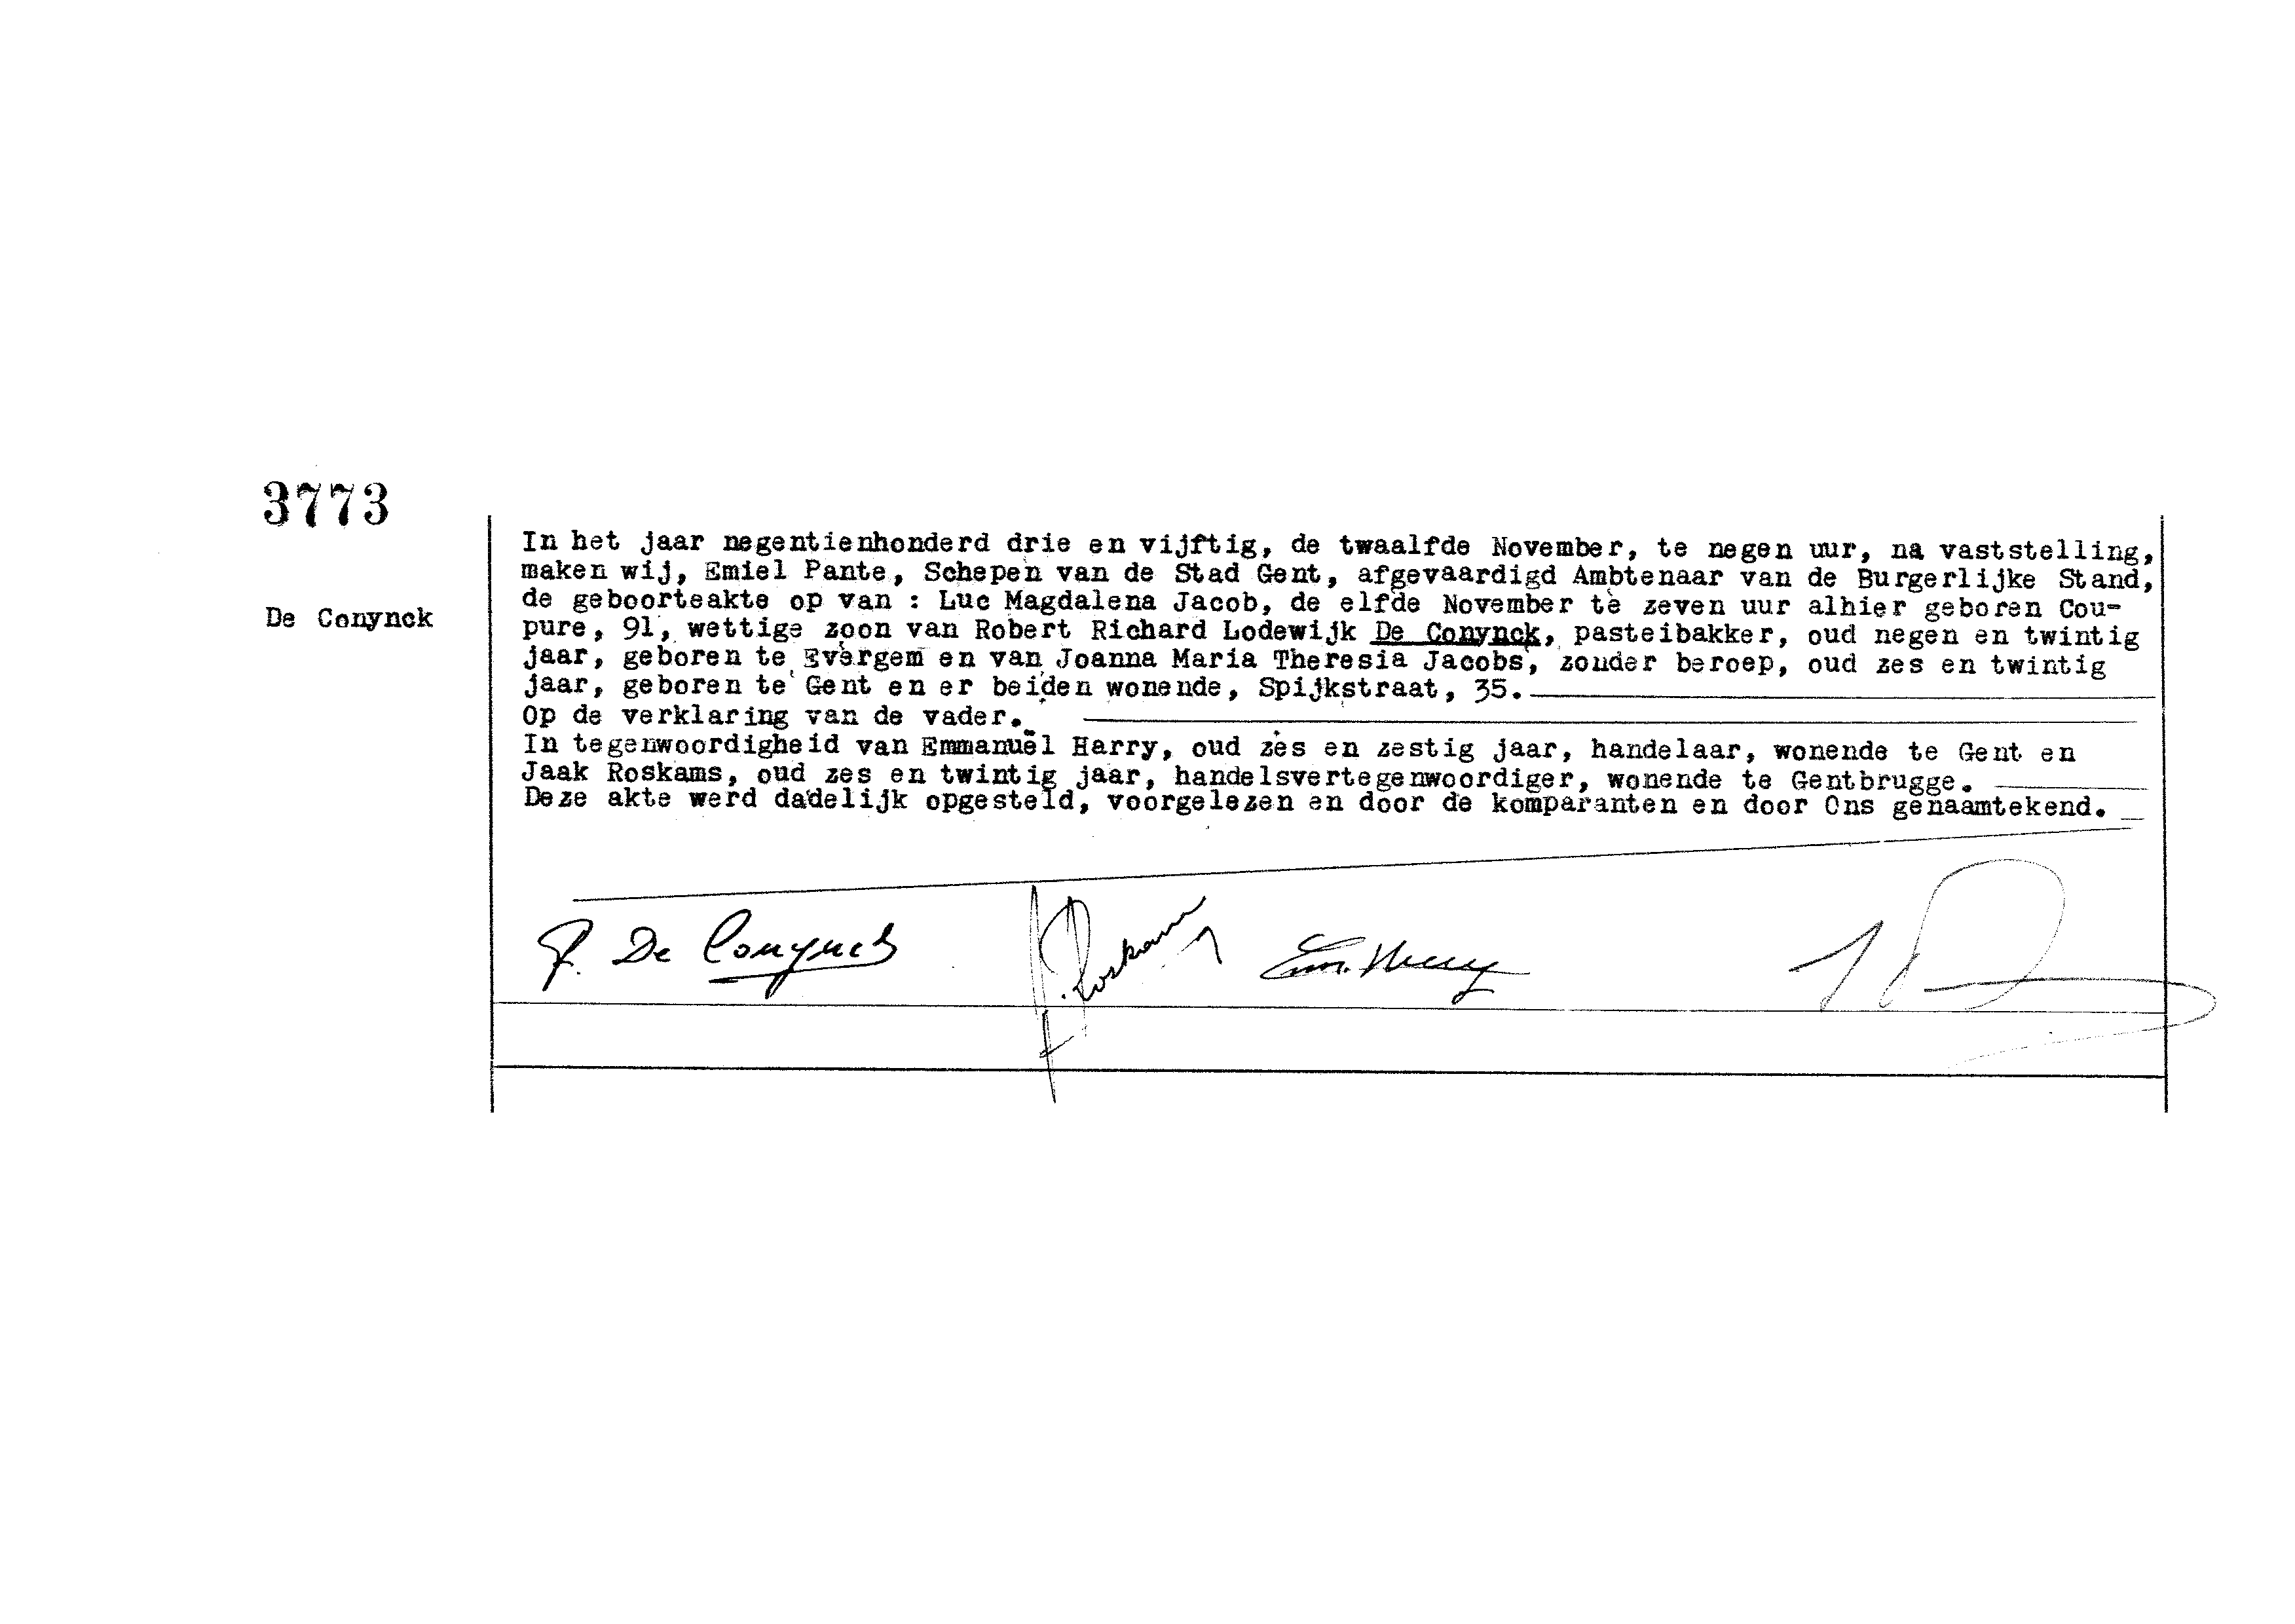 3773
De Conynck
In het jaar negentienhonderd drie en vijftig, de twaalfde November, te negen uur, na vaststelling,
maken wij, Emiel Pante, Schepen van de Stad Gent, afgevaardigd Ambtenaar van de Burgerlijke Stand,
de geboorteakte op van : Luc Magdalena Jacob, de elfde November te zeven uur alhier geboren Cou-
pure, 91, wettige zoon van Robert Richard Lodewijk De Conynck, pasteibakker, oud negen en twintig
jaar, geboren te Evergem en van Joanna Maria Theresia Jacobs, zonder beroep, oud zes en twintig
jaar, geboren te Gent en er beiden wonende, Spijkstraat, 35.
Op de verklaring van de vader.
In tegenwoordigheid van Emmanuël Harry, oud zes en zestig jaar, handelaar, wonende te Gent en
Jaak Roskams, oud zes en twintig jaar, handelsvertegenwoordiger, wonende te Gentbrugge.
Deze akte werd dadelijk opgesteld, voorgelezen en door de komparanten en door Ons genaamtekend.
R. De Conynck J. Roskams Em. Harry